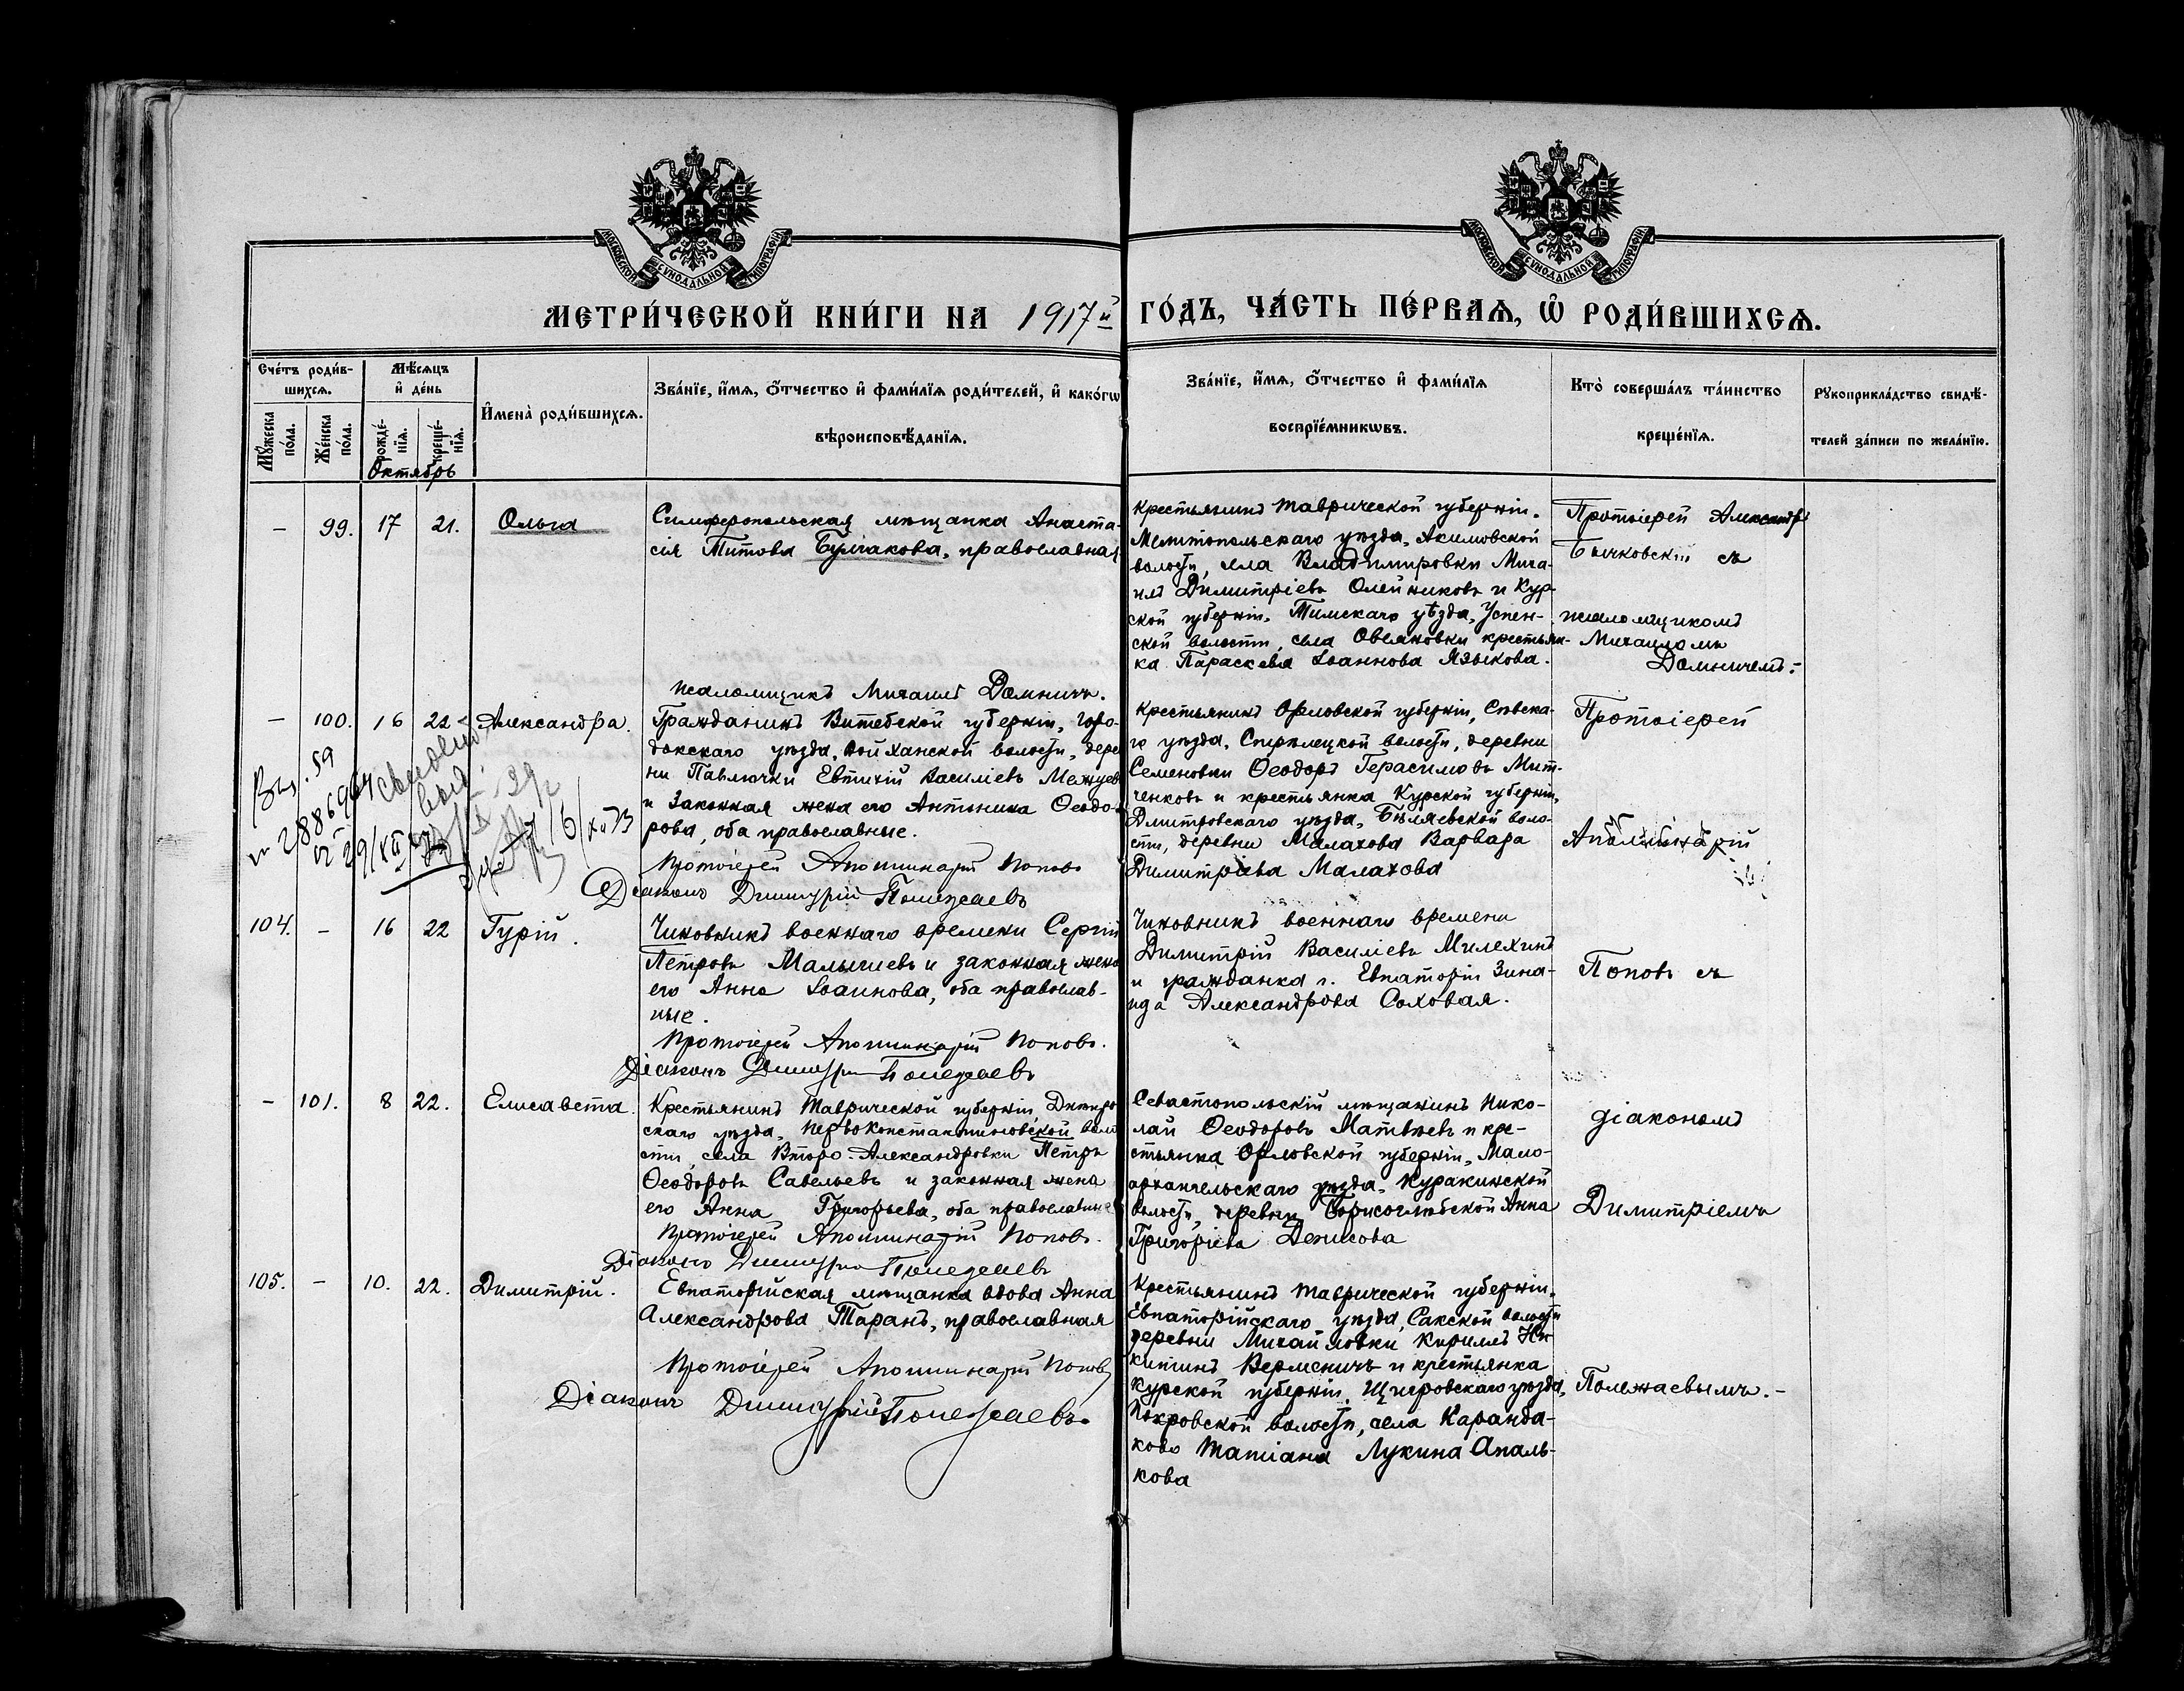 МОСКОВСКОЙ СѴНОДАЛЬНОЙ ТИПОГРАФІИ
МОСКОВСКОЙ СѴНОДАЛЬНОЙ ТИПОГРАФІИ
МЕТРИ́ЧЕСКОЙ КНИ́ГИ НА 1917й ГО́ДЪ, ЧА́СТЬ ПЕ́РВАѦ, Ѽ РОДИ́ВШИХСѦ.
Сче́тъ роди́в-
шихсѧ.
Мꙋ́жеска по́ла.
Же́нска по́ла.
Мѣ́сѧцъ
и҆ де́нь
рожде́-
нїѧ.
креще́-
нїѧ.
Октябрь
И҆мена̀ роди́вшихсѧ.
Зва́нїе, и҆́мѧ, ѻ҆́тчество и҆ фами́лїѧ роди́телей, и҆ како́гѡ
вѣроисповѣ́данїѧ.
Зва́нїе, и҆́мѧ, ѻ҆́тчество и҆ фами́лїѧ
воспрїе́мникѡвъ.
Кто̀ соверша́лъ та́инство
креще́нїѧ.
Рꙋкоприкла́дство свидѣ́-
телей за́писи по жела́нїю.
– 99. 17 21. Ольга
Симферопольская мѣщанка Анаста-
сія Титова Булгакова, православная
Крестьянинъ Таврической губерніи,
Мелитопольскаго уѣзда, Акимовской
волости, села Владимировки Миха-
илъ Димитріевъ Олейниковъ и Кур-
ской губерніи, Тимскаго уѣзда, Успен-
ской волости, села Овсяновки крестьян-
ка Параскева Іоаннова Языкова.
Протоіерей Александръ
Бычковскій съ
псаломщикомъ
Михаиломъ
Домничемъ.-
псаломщикъ Михаилъ Домничъ.
– 100. 16 22 Александра.
Гражданинъ Витебской губерніи, Горо-
докскаго уѣзда, Войханской волости, дерев
ни Павлючки Евтихій Василіевъ Межуев
и законная жена его Антонина Ѳеодо-
рова, оба православные.
Протоіерей Аполлинарій Поповъ
Діаконъ Димитрій Полежаевъ
Крестьянинъ Орловской губерніи, Сѣвска-
го уѣзда, Стрѣлецкой волости, деревни
Семеновки Ѳеодоръ Герасимовъ Мит-
ченковъ и крестьянка Курской губерніи,
Дмитровскаго уѣзда, Бѣляевской воло-
сти, деревни Малахова Варвара
Димитріева Малахова
Протоіерей
Аполлинарій
104. – 16 22 Гурій.
Чиновникъ военнаго времени Сергій
Петровъ Малышевъ и законная жена
его Анна Іоаннова, оба православ-
ные.
Протоіерей Аполлинарій Поповъ.
Діаконъ Димитрій Полежаевъ
Чиновникъ военнаго времени
Димитрій Василіевъ Милехинъ
и гражданка г. Евпаторіи Зина-
ида Александрова Соховая.
Поповъ съ
– 101. 8 22. Елисавета.
Крестьянинъ Таврической губерніи Днѣпров
скаго уѣзда, Первоконстантиновской воло
сти, села Второ-Александровки Петръ
Ѳеодоровъ Савельевъ и законная жена
его Анна Григорьева, оба православные
Протоіерей Аполлинарій Поповъ.
Діаконъ Димитрій Полежаевъ
Севастопольскій мѣщанинъ Нико-
лай Ѳеодоровъ Матвѣевъ и кре-
стьянка Орловской губерніи, Мало-
архангельскаго уѣзда, Куракинской
волости, деревни Борисоглѣбской Анна
Григоріева Денисова
діакономъ
Димитріемъ
105. – 10. 22. Димитрій.
Евпаторійская мѣщанка вдова Анна
Александрова Таранъ, православная
Протоіерей Аполлинарій Поповъ
Діаконъ Димитрій Полежаевъ
Крестьянинъ Таврической губерніи,
Евпаторійскаго уѣзда, Сакской волости
деревни Михайловки Кириллъ Ни-
китинъ Верменичъ и крестьянка
Курской губерніи, Щигровскаго уѣзда,
Покровской волости, села Каранда-
ково Татіана Лукина Апаль-
кова
Полежаевымъ.-